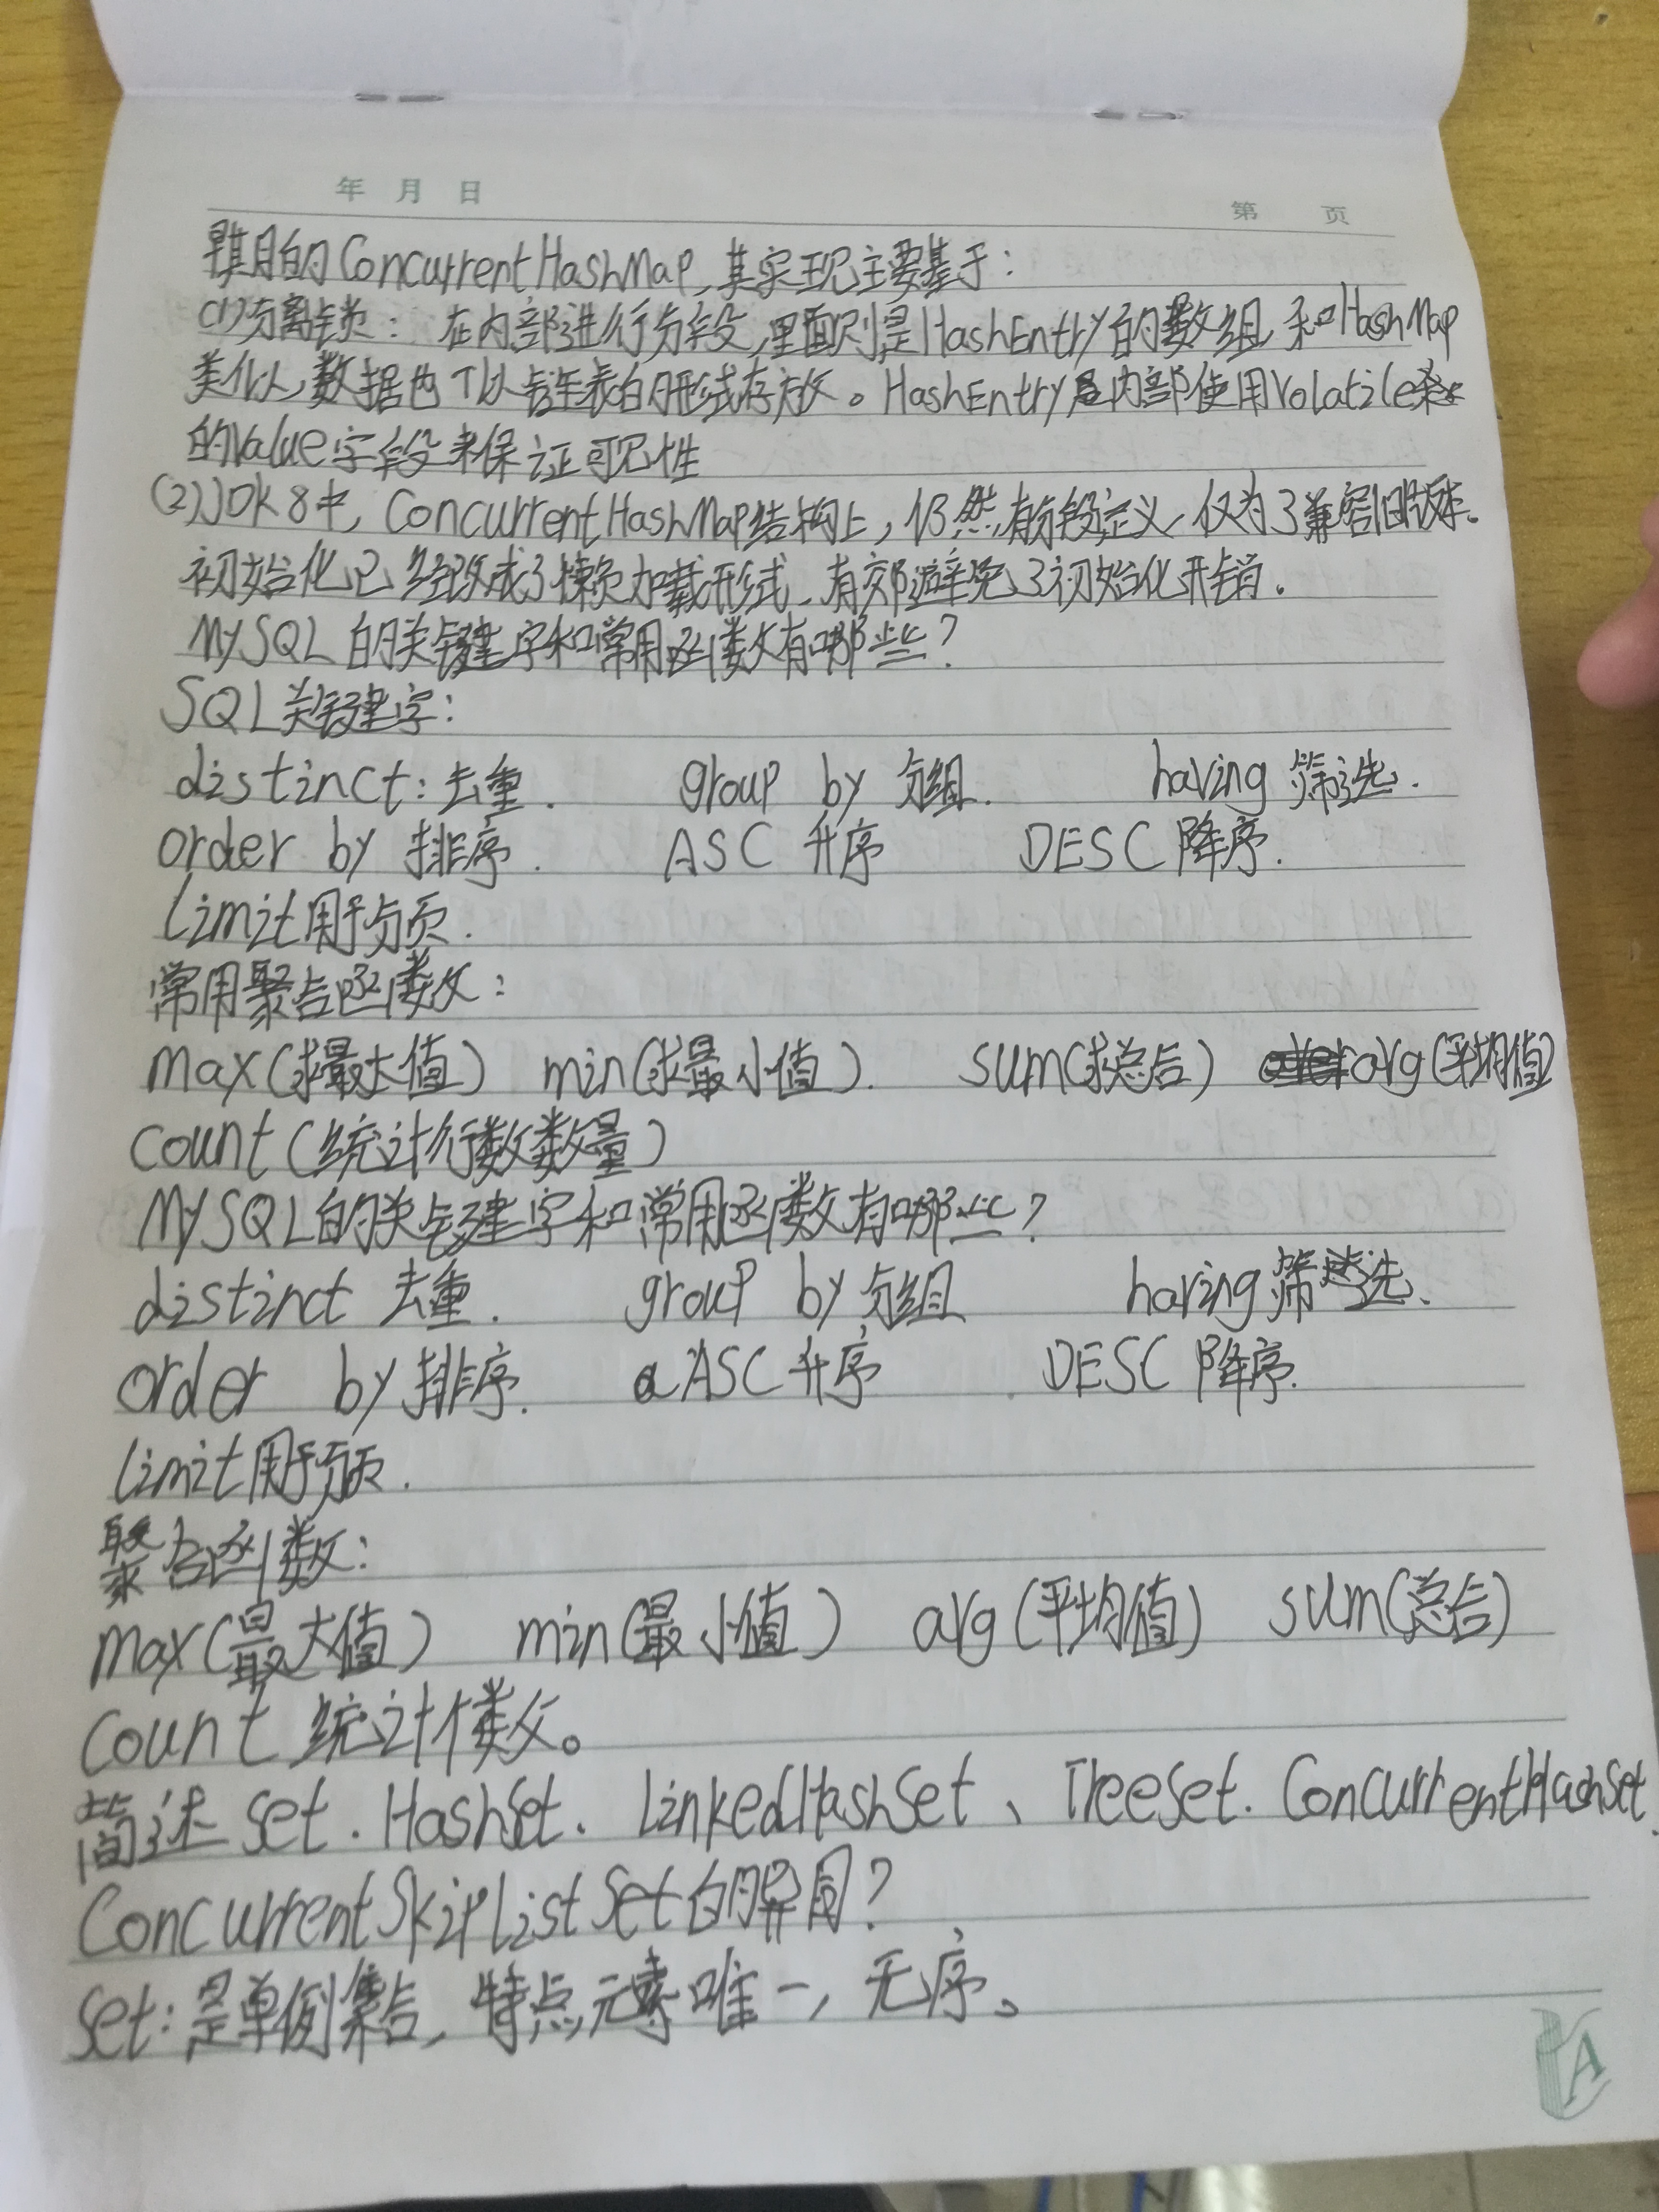 年 月 日
第 页
早期的ConcurrentHashMap,其实现主要基于:
(1)分离锁: 在内部进行分段,里面则是HashEntry的数组,和HashMap
类似,数据也可以链表的形式存放。HashEntry内部使用Volatile来
的Value字段来保证可见性
(2)JDK8中, ConcurrentHashMap结构上,仍然有分段定义,仅为了兼容旧版本.
初始化已经改成了懒加载形式,有效避免了初始化开销.
MySQL的关键字和常用函数有哪些?
SQL关键字:
distinct:去重. group by 分组. having 筛选.
order by 排序. ASC 升序 DESC 降序.
limit用于分页.
常用聚合函数:
max(求最大值) min(求最小值). sum(求总合) avg(平均值)
count(统计行数数量)
MySQL的关键字和常用函数有哪些?
distinct 去重. group by 分组 having 筛选.
order by 排序. ASC 升序 DESC 降序.
limit用于分页.
聚合函数:
max(最大值) min(最小值) avg(平均值) sum(总合)
Count 统计个数。
简述 Set. HashSet. LinkedHashSet、TreeSet. ConcurrentHashSet.
ConcurrentSkipListSet的异同?
Set:是单例集合,特点元素唯一,无序。
A